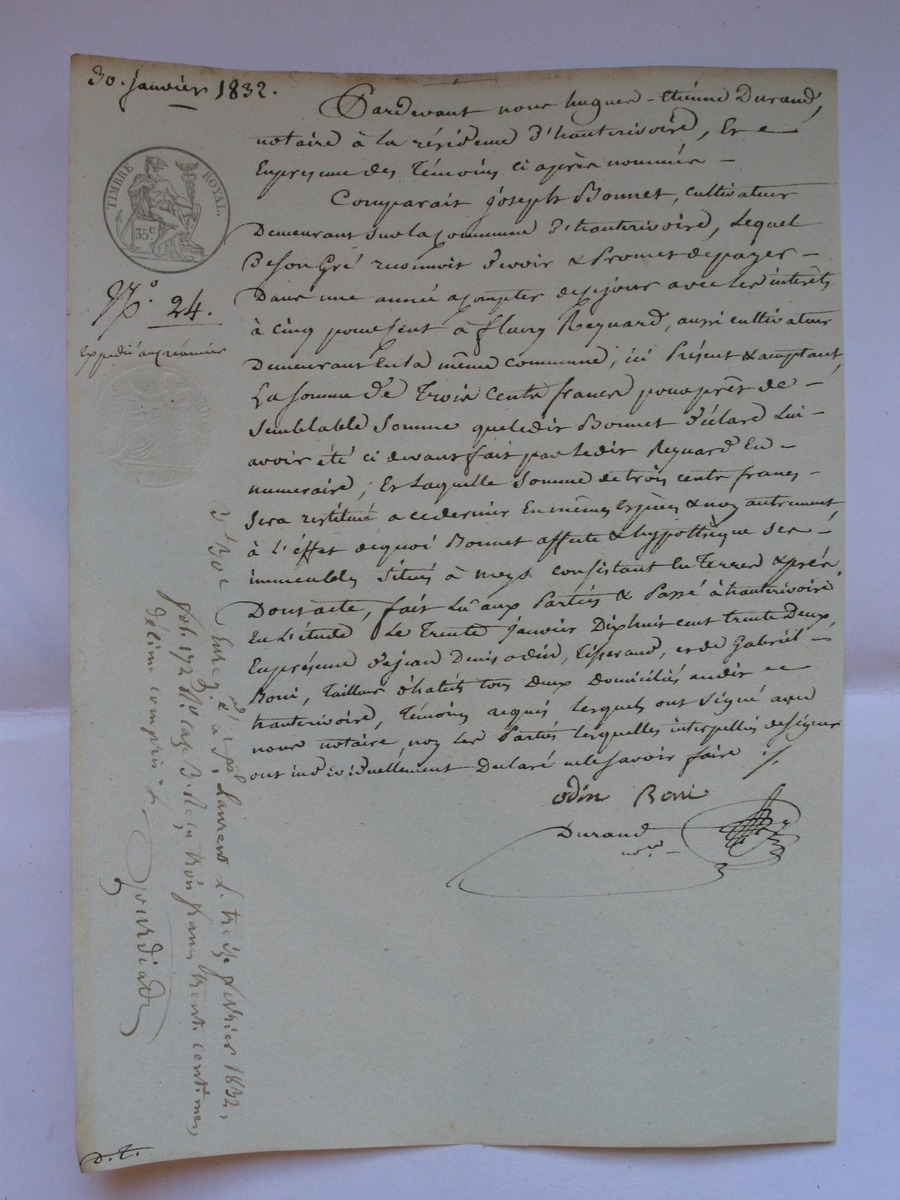 30. janvier 1832.
TIMBRE ROYAL.
35 c
N.o 24.
Expédié au créancier
Pardevant nous hugues-Etienne Durand,
notaire à la résidence d'hauterivoire, Et
En présence des Témoins ci après nommés
Comparait joseph Bonnet, cultivateur
Demeurant sur la Commune d'hauterivoire, Lequel
De son Gré reconnoit devoir & Promet de payer
Dans une année a compter de ce jour avec Les intérêts
à cinq pour cent à fleury Reynard, aussi cultivateur
Demeurant En la même commune, ici Présent & acceptant,
La somme de Trois Cents francs pour prêt de
semblable Somme que ledit Bonnet déclare Lui
avoir été ci devant fait par ledit Reynard En
numeraire; Et Laquelle Somme de trois cents francs
sera restitué a ce dernier En mêmes Espèces & non autrement
à L'éffet de quoi Bonnet affecte & hypothèque ses
immeubles situés à meys consistant En Terres & prés
Dont acte, fait Lu aux Parties & Passé à hauterivoire
En L'étude Le Trente Janvier Dix huit cent trente Deux,
En présence de jean Denis odin, Tisserand, et de Gabriel
Boni, Tailleur d'habits tous Deux domiciliés audit
hauterivoire, Témoins requis lesquels ont signé avec
nous notaire, non Les Parties Lesquelles interpellées de signer
ont individuellement Déclaré ne le savoir faire ./.
odin Boni
Durand
no.re
Enreg.é à S.t Laurent le treize février 1832,
fol. 172 R.o case 3. reçu trois francs trente centimes
décime compris
D. T.